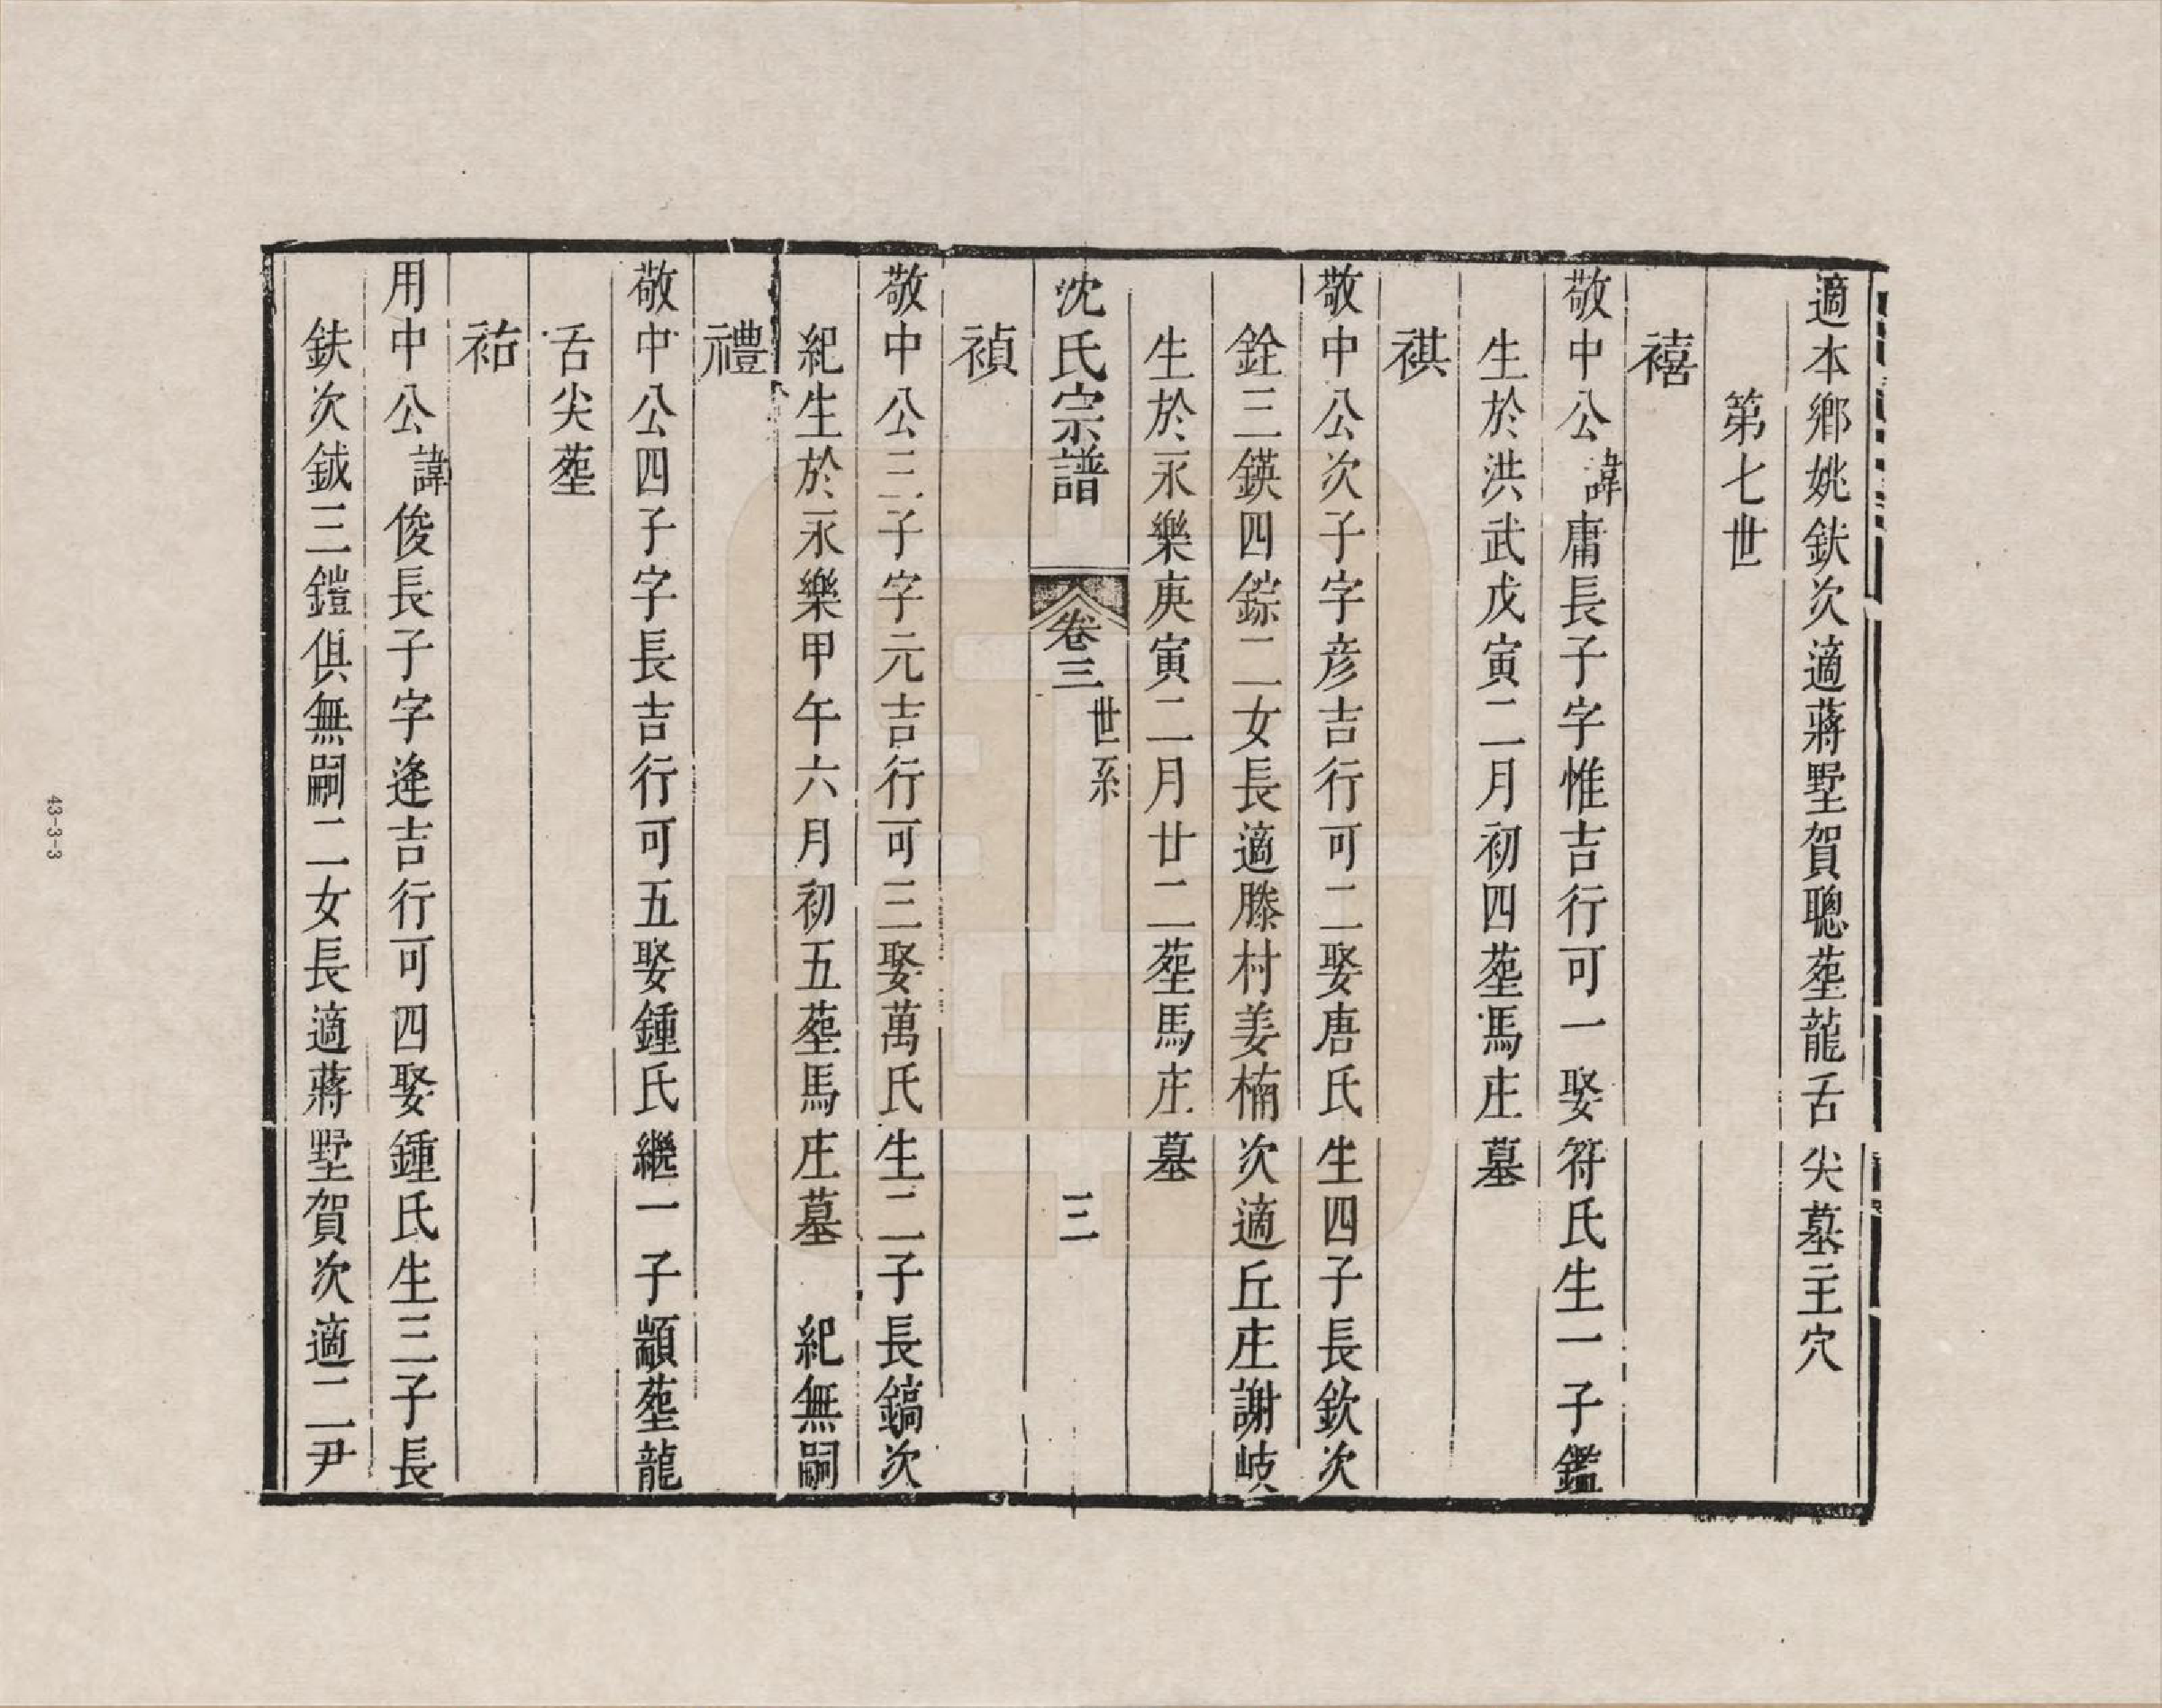 適本鄉姚鈇次適蔣墅賀聰塟龍舌尖墓主穴
第七世
禧
敬中公諱庸長子字惟吉行可一娶符氏生一子鑑
生於洪武戊寅二月初四塟馬庄墓
祺
敬中公次子字彦吉行可二娶唐氏生四子長欽次
銓三鍈四錝二女長適滕村姜楠次適丘庄謝岐
生於永樂庚寅二月廿二塟馬庄墓
沈氏宗譜
卷三
世系
三
禎
敬中公三子字元吉行可三娶萬氏生二子長鎬次
紀生於永樂甲午六月初五塟馬庄墓 紀無嗣
禮
敬中公四子字長吉行可五娶鍾氏繼一子顓塟龍
舌尖塟
祐
用中公諱俊長子字逢吉行可四娶鍾氏生三子長
鈇次鉞三鎧俱無嗣二女長適蔣墅賀次適二尹
43-3-3